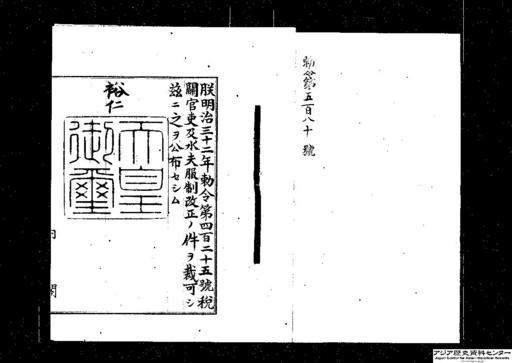 勅令第五百八十號
朕明治三十二年勅令第四百二十五號稅
關官吏及水夫服制改正ノ件ヲ裁可シ
茲ニ之ヲ公布セシム
裕仁
天皇
御璽
内閣
アジア歴史資料センター
Japan Center for Asian Historical Records